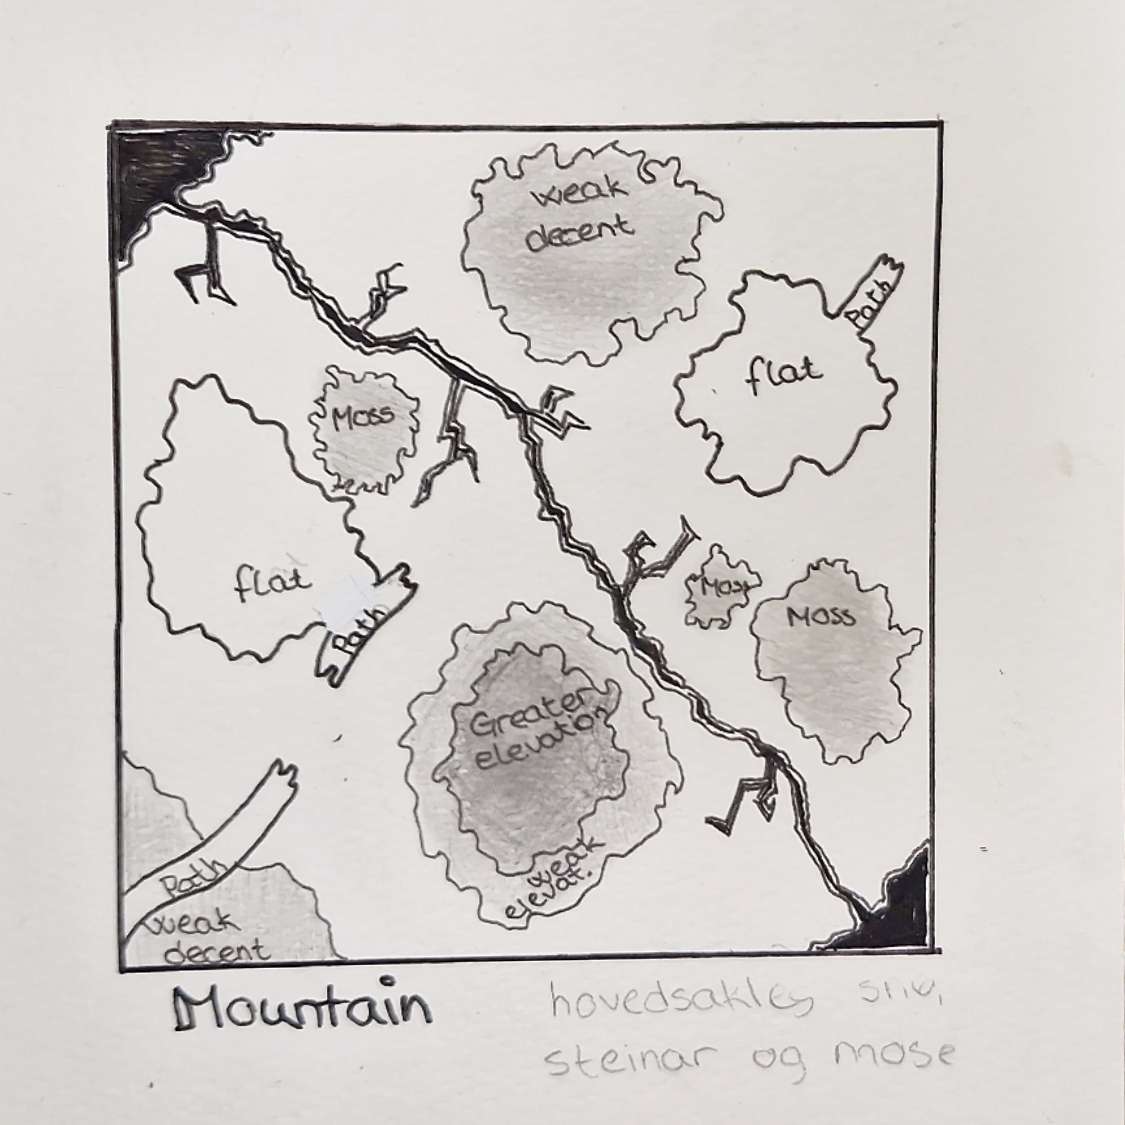 weak
decent
Path
flat
Moss
flat
Path
Moss
Moss
Greater
elevation
weak
elevat.
Path
weak
decent
Mountain
hovedsakleg
steinar og mose